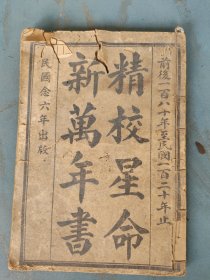 前後一百八十年至民國一百二十年止
精校星命
新萬年書
民國念六年出版